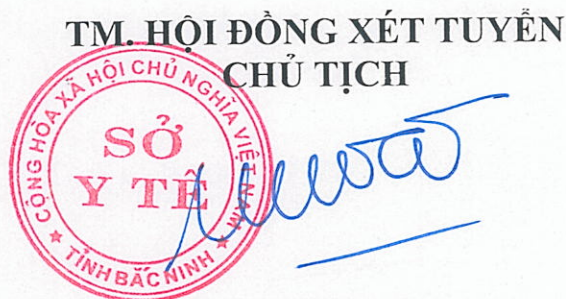 TM. HỘI ĐỒNG XÉT TUYỂN
CHỦ TỊCH
CỘNG HÒA XÃ HỘI CHỦ NGHĨA VIỆT NAM
SỞ
Y TẾ
★ TỈNH BẮC NINH ★